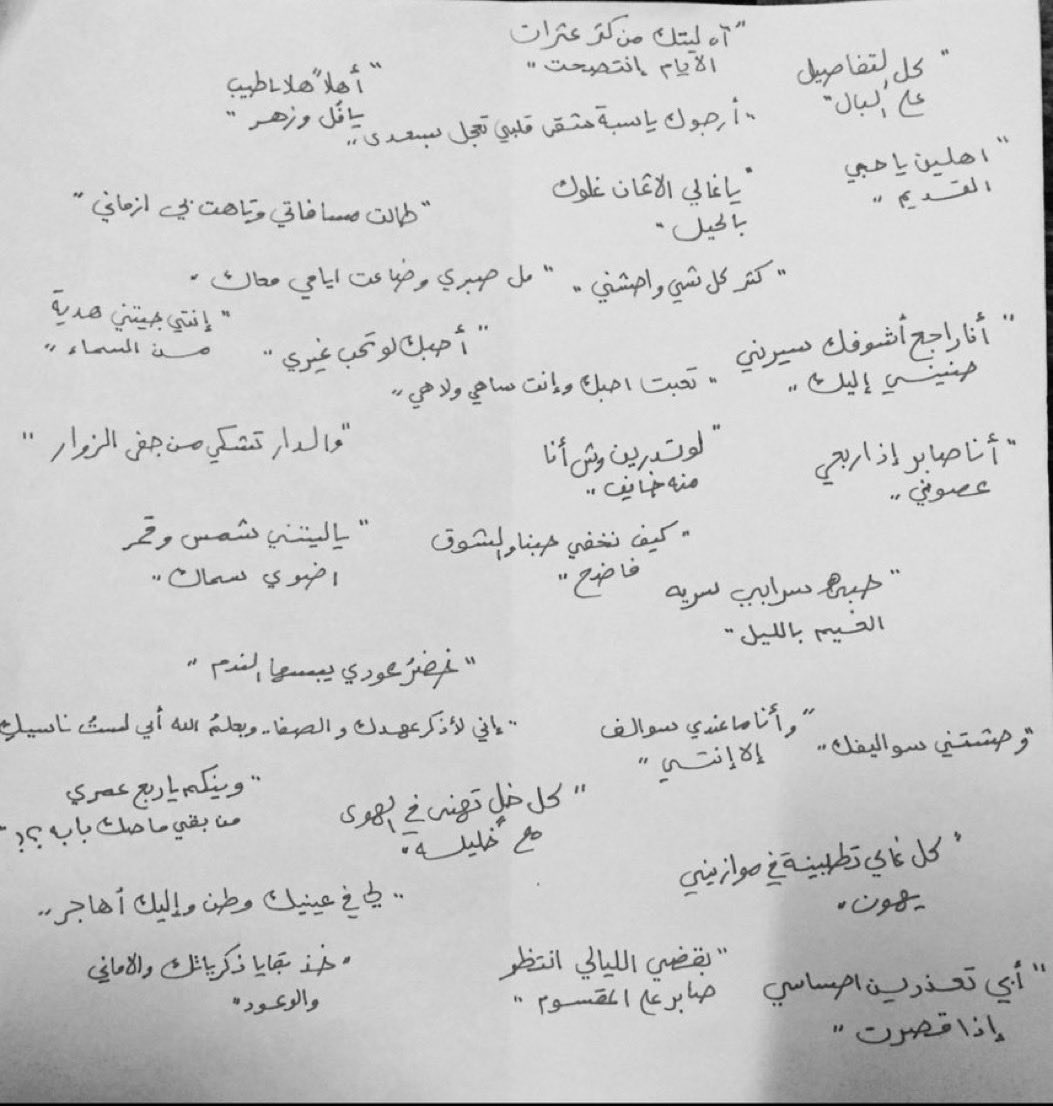 "آه ليتك من كثر عثرات
الأيام إنتصحت"
"كل التفاصيل
على البال"
"أهلاً هلا ياطيب
يا فل وزهر"
"أرجوك ياسبة شقى قلبي تعجل بسعدي"
"اهلين يا حبي
القديم"
"يا غالي الأثمان غلوك
بالحيل"
"طالت مسافاتي وتاهت بي ازماني"
"كثر كل شي واحشني"
"مل صبري وضاعت ايامي معاك"
"إنتي جيتني هدية
من السماء"
"أحبك لو تحب غيري"
"أنا راجع أشوفك سيرني
حنيني إليك"
"تعبت احبك وإنت ساهي ولاهي"
"والدار تشكي من جفى الزوار"
"لو تدرين وش أنا
منه خايف"
"أنا صابر إذا ربعي
عصوني"
"ياليتني شمس وقمر
اضوي سماك"
"كيف نخفي حبنا والشوق
فاضح"
"حبها سرابي سريه
الغيم بالليل"
"خضرُ عودي يبسها الندم"
"إني لأذكر عهدك والصفا.. ويعلمُ الله أني لستُ ناسيكِ
"وأنا ما عندي سوالف
إلا إنتي"
"وحشتني سواليفك"
"وينكم يا ربع عمري
من بقي ما صك بابه ؟؟"
"كل خلٍ تهنى في الهوى
مع خليله"
"كل غالي تطبينة في موازيني
يهون"
"لي في عينيك وطن وإليك أهاجر"
"خذ بقايا ذكرياتك والاماني
والوعود"
"بقضي الليالي انتظر
صابر على المقسوم"
"أبي تعذرين احساسي
إذا قصرت"